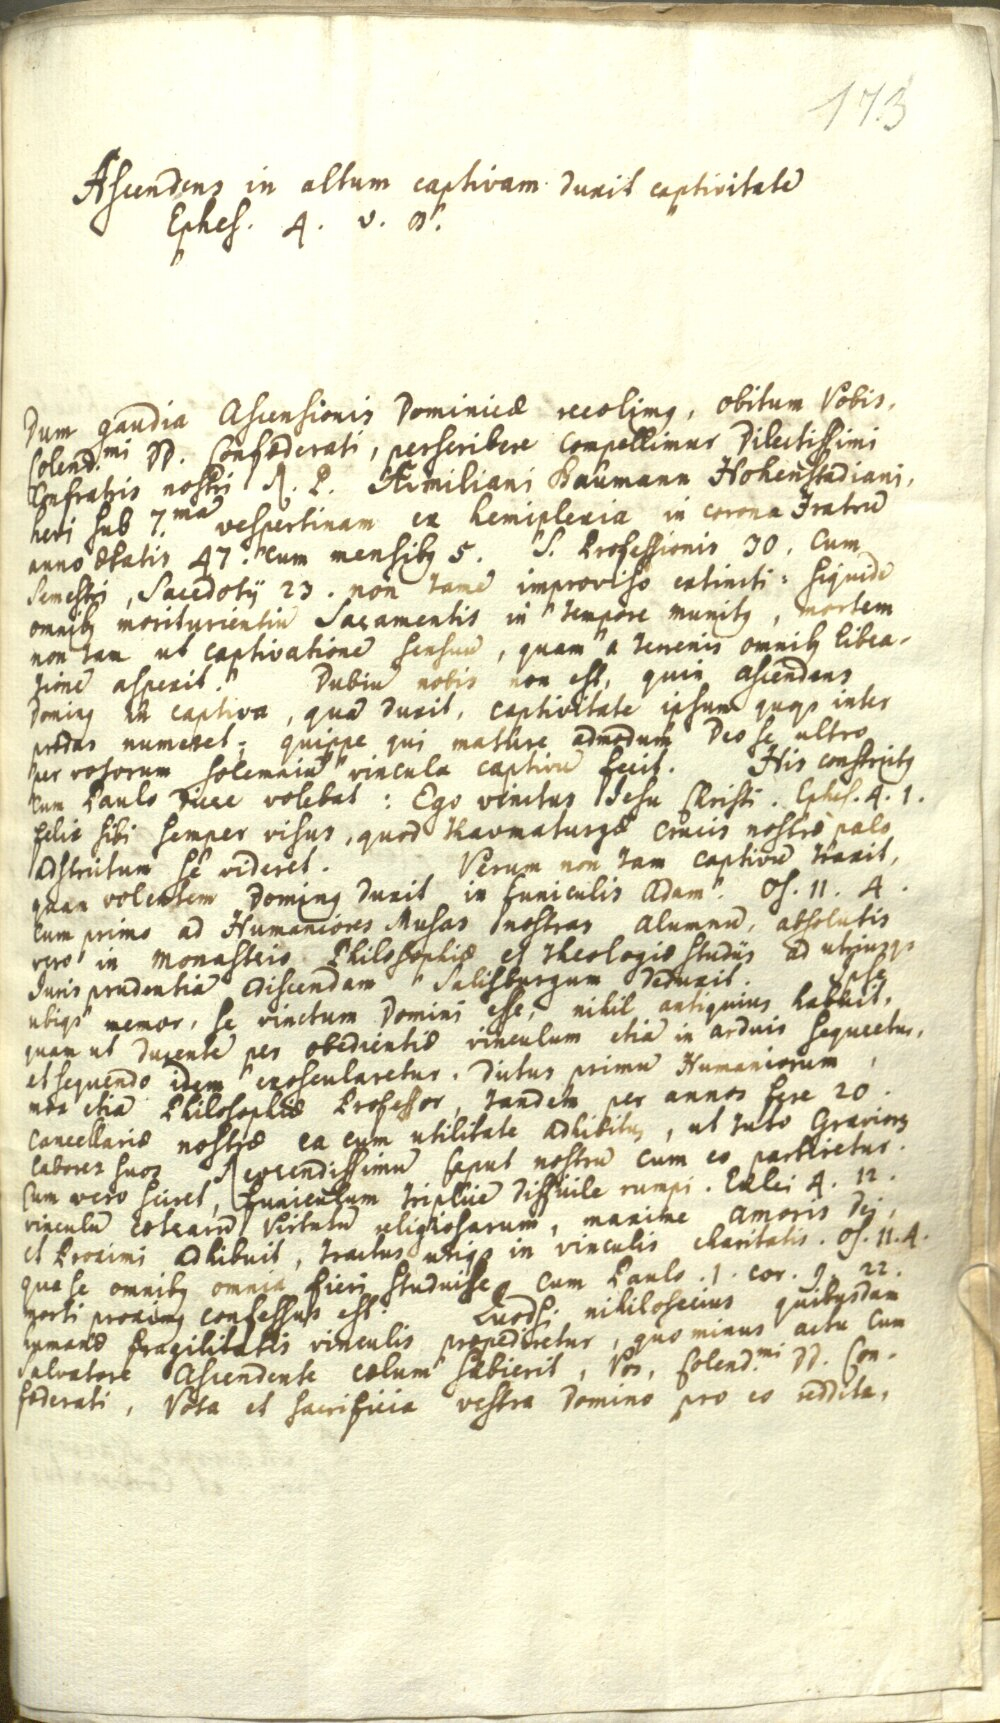 173
Ascendens in altum captivam duxit captivitatē
Ephes. 4. v. 8.
Dum gaudia Ascensionis Dominicæ recolimꝰ, obitum Vobis,
Colend.mi DD. Confœderati, perscribere compellimur Dilectissimi
Confratris nostri R. P. Æmiliani Baumann Hohenstadiani,
heri sub 7.mā vespertinam ex hemiplexia in corona Fratrū
anno ætatis 47. cum mensibꝰ 5. S. Professionis 30, cum
semestri, Sacerdotij 23. non tamē improviso extincti: siquidē
omnibꝰ morituriētiū Sacramentis in tempore munitꝰ, mortem
non tam ut captivationē sensuū, quam a terrenis omnibꝰ libera-
tionē aspexit. Dubiū nobis non est, quin ascendens
Dominꝰ in captiva, quā duxit, captivitate ipsum quoqꝫ inter
prædas numeret; quippe qui mature admodum Deo se ultro
per votorum solemniū vincula captivū fecit. His constrictꝰ
cum Paulo dicere volebat: Ego vinctus Jesu Christi. Ephes. 4. 1.
felix sibi semper visus, quod thavmaturgæ crucis nostræ palo
adstrictum se videret. Verum non tam captivū traxit,
quam volentem Dominꝰ duxit in funiculis Adam. Os. 11. 4.
Cum primo ad Humaniores Musas nostras alumnū, absolutis
vero in Monasterio Philosophiæ et Theologiæ studiis ad utriusqꝫ
Juris prudentiā addiscendam Salisburgum deduxit. Ipse
ubiqꝫ memor, se vinctum Domini esse, nihil antiquius habuit,
quam ut ducentē per obedientiæ vinculum etiā in arduis sequeretur,
et sequendo idem exoscularetur. Dictus primū Humaniorum,
mox etiā Philosophiæ Professor, tandem per annos fere 20.
Cancellariæ nostræ ea cum utilitate adhibitꝰ, ut tuto Graviores
labores suos Reverendissimū Caput nostrū cum eo partiretur.
Cum vero sciret, funiculum triplicē difficile rumpi. Eccle. 4. 12.
vinculū cæterarū Virtutū religiosarum, maxime amoris Dei,
et Proximi adhibuit, tractus utiqꝫ in vinculis charitatis. Os. 11. 4.
qua se omnibꝰ omnia fieri studuisse cum Paulo. 1. cor. 9. 22.
morti proximꝰ confessus est. Quodsi nihilosecius quibusdam
humanæ fragilitatis vinculis præpediretur, quo minus actu cum
Salvatore Ascendente cœlum subierit, Vos, Colend.mi DD. Con-
fœderati, Vota et sacrificia vestra Domino pro eo reddite,